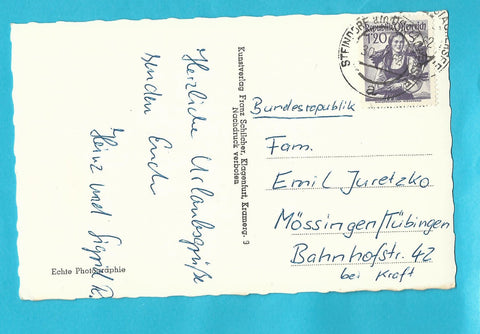 Herzliche Urlaubsgrüße
senden Euch
Heinz und Sigrid R.
Echte Photographie
Kunstverlag Franz Schilcher, Klagenfurt, Kramerg. 9
Nachdruck verboten
Republik Österreich
1.20
STEINDORF
Bundesrepublik
Fam.
Emil Juretzko
Mössingen/Tübingen
Bahnhofstr. 42
bei Kraft